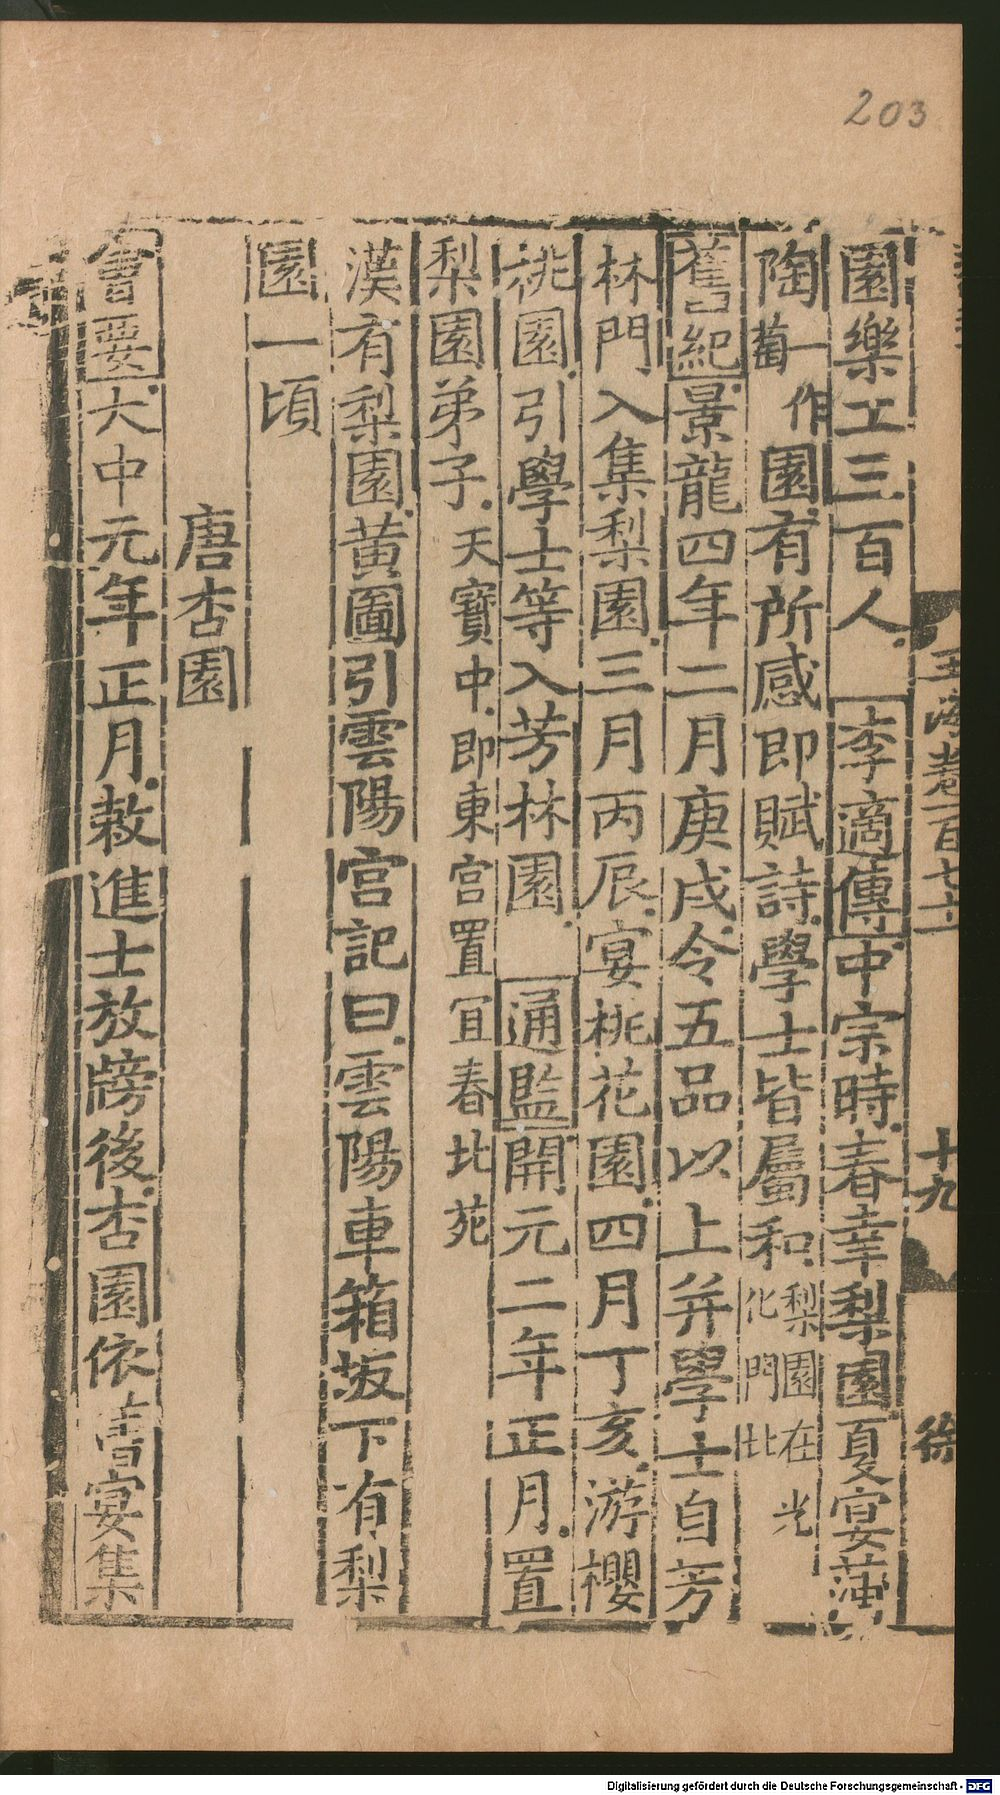 203
玉海卷一百七十一
十九
徐
園樂工三百人李適傳中宗時春幸梨園夏宴蒲
陶一作萄園有所感即賦詩學士皆屬和梨園在光化門北
舊紀景龍四年二月庚戌令五品以上并學士自芳
林門入集梨園三月丙辰宴桃花園四月丁亥游櫻
桃園引學士等入芳林園通監開元二年正月置
梨園弟子天寶中即東宮置宜春北苑
漢有梨園黃圖引雲陽宮記曰雲陽車箱坂下有梨
園一頃
唐杏園
會要大中元年正月敕進士放牓後杏園依舊宴集
Digitalisierung gefördert durch die Deutsche Forschungsgemeinschaft - DFG